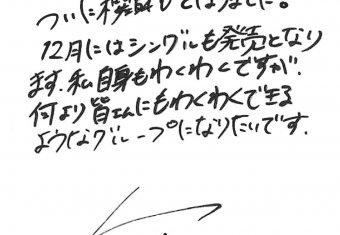 ついに横解りとなりました。
12月にはシングルも発売となり
ます。私自身もわくわくですが、
何より皆さんにもわくわくできる
ようなグループになりたいです。